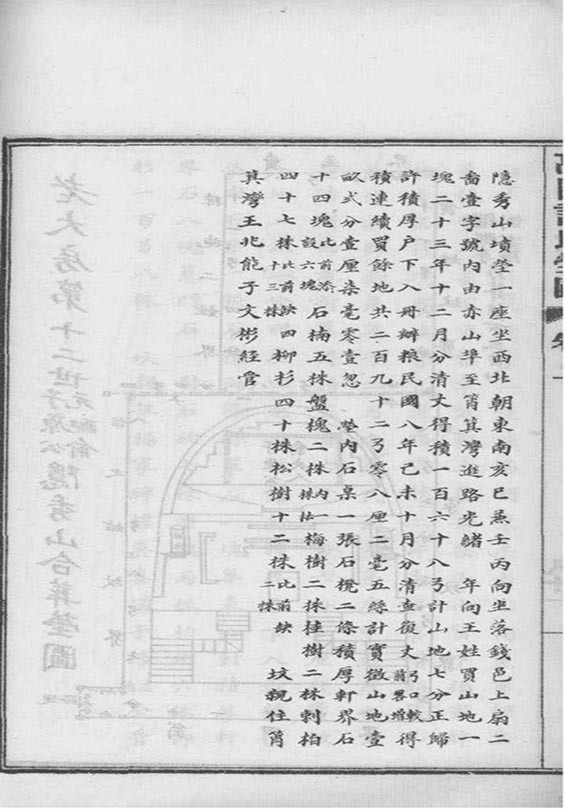 隱秀山墳塋一座坐西北朝東南亥巳兼壬丙向坐落錢邑上扇二
畨壹字號內由赤山埠至筲箕灣進路光緒 年向王姓買山地一
塊二十三年十二月分清丈得積一百六十八弓計山地七分正歸
許積厚戶下八冊辦粮民國八年己未十月分清查復丈弓口較前畧增得
積連續買餘地共二百九十二弓零八厘二毫五絲計實徵山地壹
畝弍分壹厘柒毫零壹忽 塋內石桌一張石櫈二條積厚軒界石
十四塊比前添設六塊石楠五株盤槐二株內一株枯梅樹二株桂樹二株刺柏
四十七株比前缺十三株四柳杉四十株松樹十二株比前缺二株 坟親住筲
箕灣王北能子文彬經管